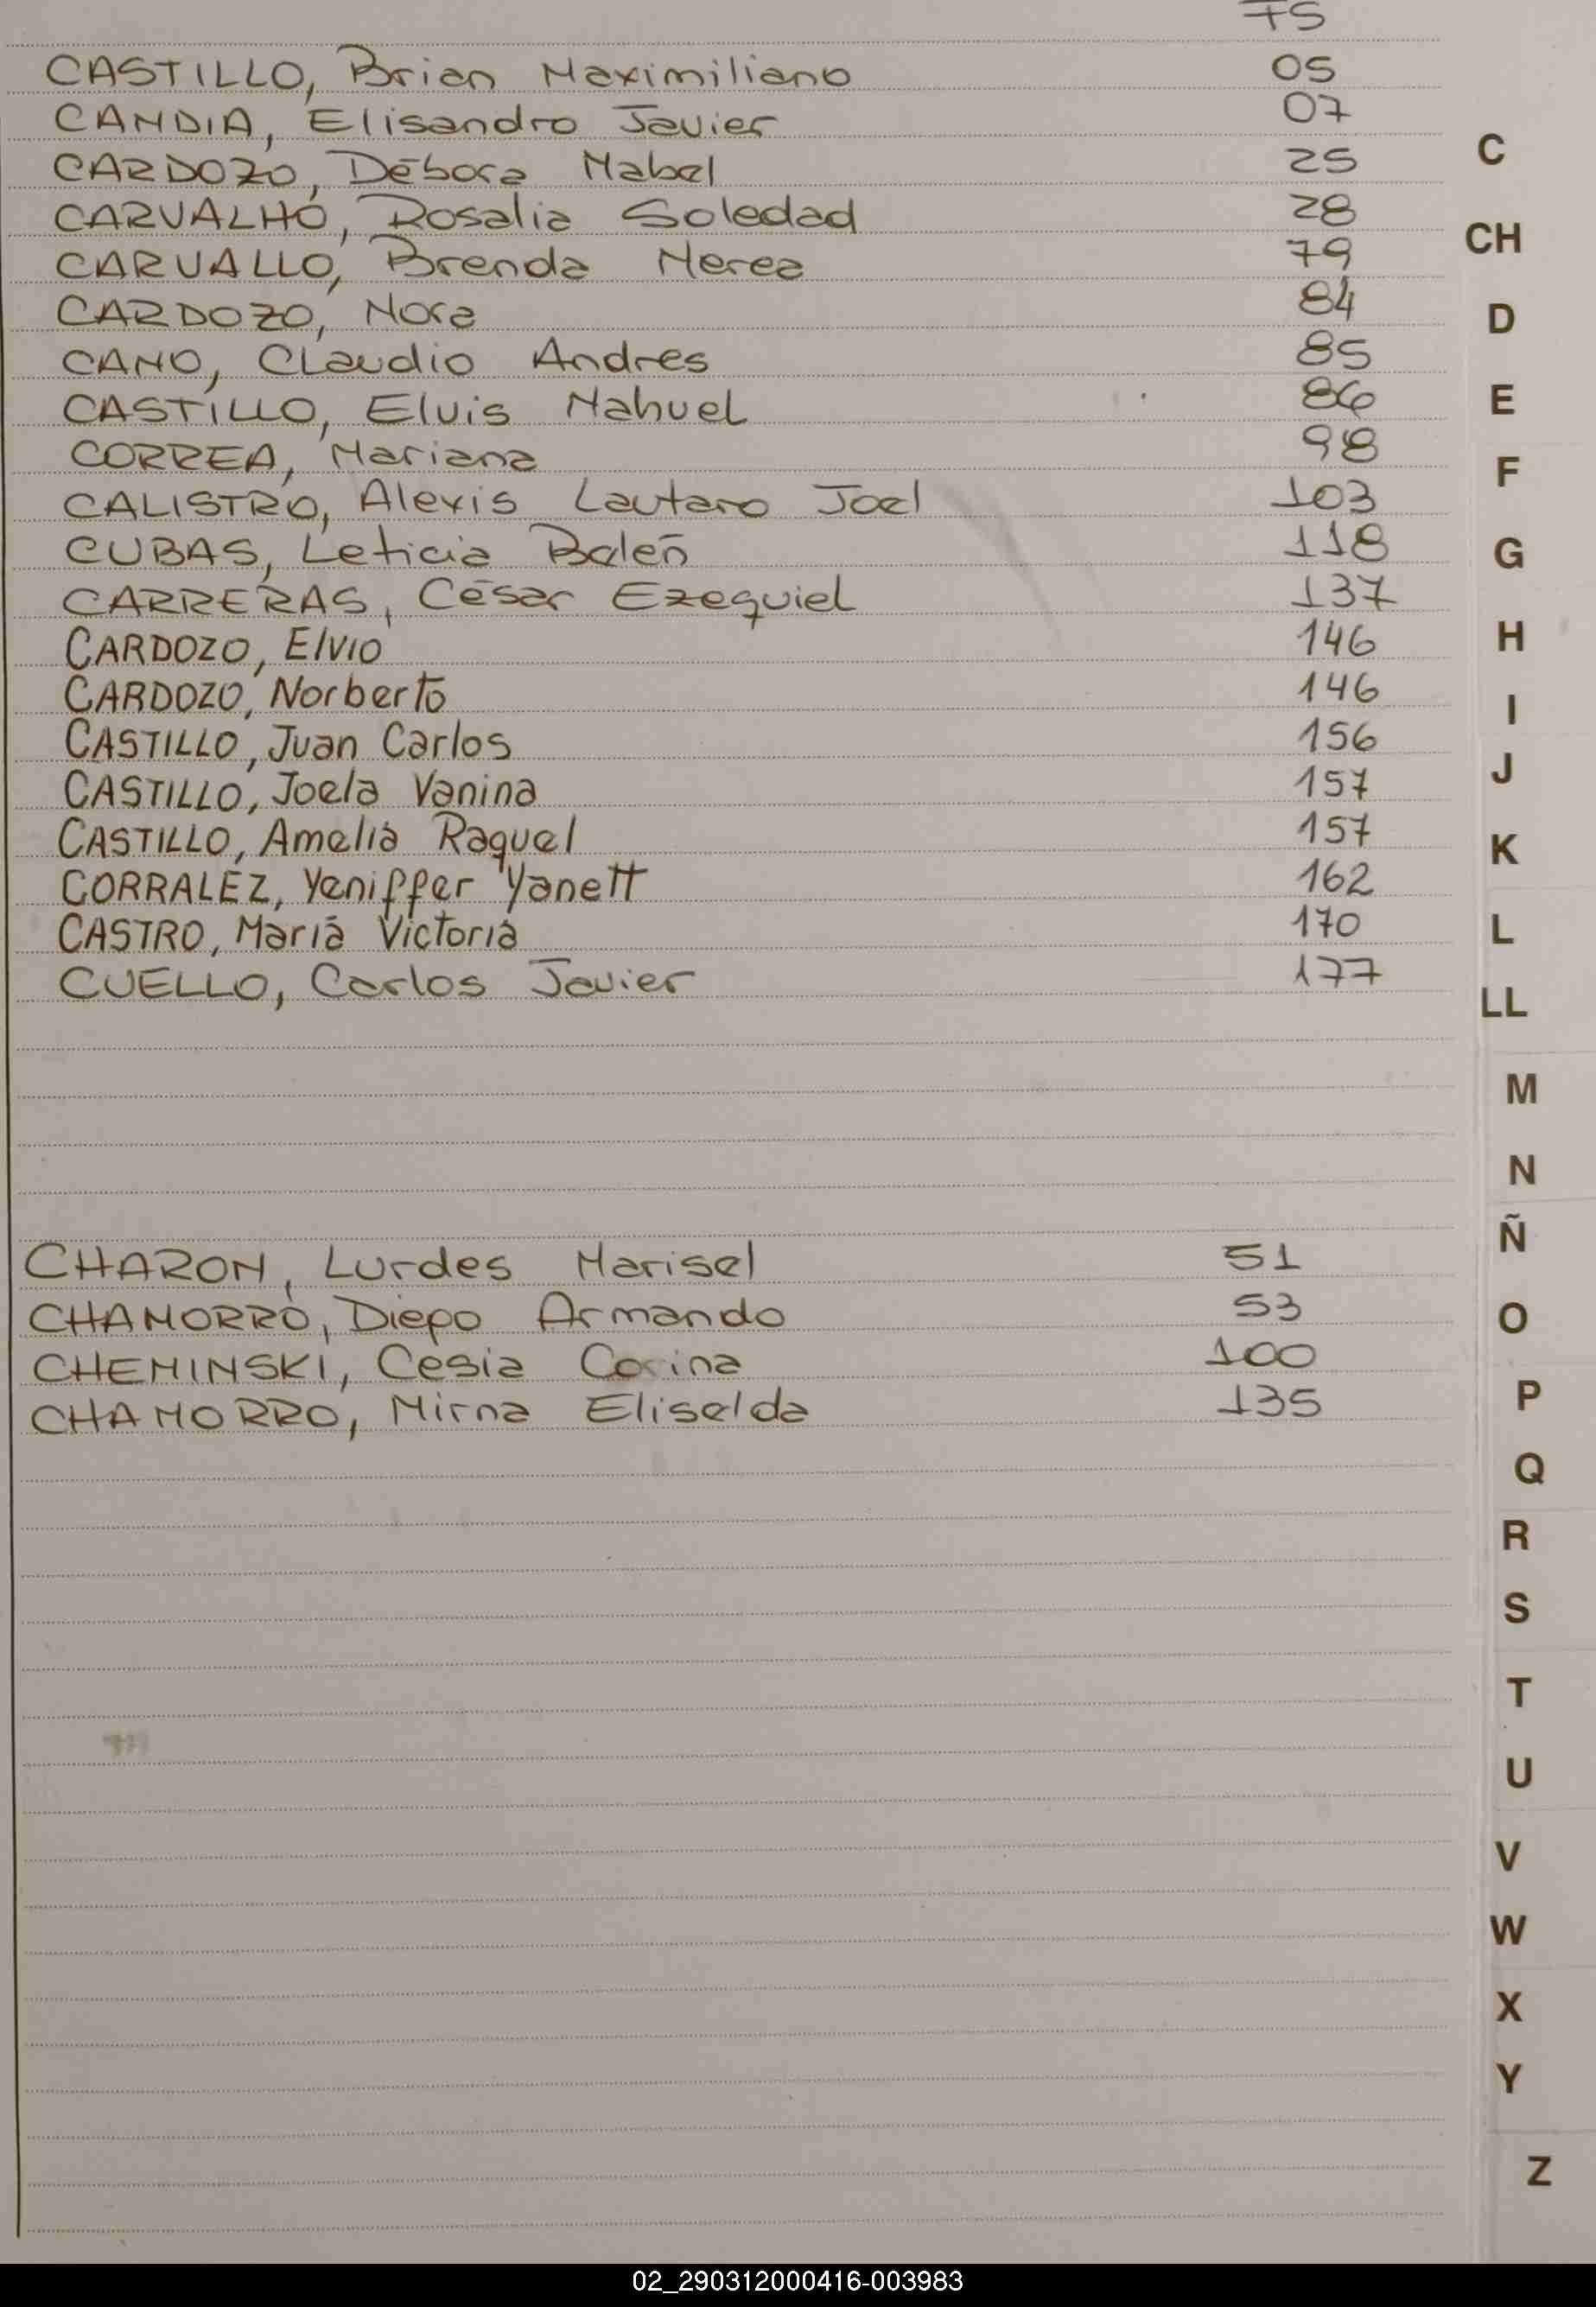 FS
CASTILLO, Brian Maximiliano 05
CANDIA, Elisandro Javier 07
CARDOZO, Débora Mabel 25
C
CARVALHO, Rosalia Soledad 28
CH
CARVALLO, Brenda Nerea 79
CARDOZO, Nora 84
D
CANO, Claudio Andres 85
CASTILLO, Elvis Nahuel 86
E
CORREA, Mariana 98
F
CALISTRO, Alexis Lautaro Joel 103
CUBAS, Leticia Belén 118
G
CARRERAS, César Ezequiel 137
CARDOZO, Elvio 146
H
CARDOZO, Norberto 146
I
CASTILLO, Juan Carlos 156
J
CASTILLO, Joela Vanina 157
CASTILLO, Amelia Raquel 157
K
CORRALEZ, Yeniffer Yanett 162
CASTRO, María Victoria 170
L
CUELLO, Carlos Javier 177
LL
M
N
Ñ
CHARON, Lurdes Marisel 51
CHAMORRO, Diego Armando 53
O
CHEMINSKI, Cesia Corina 100
CHAMORRO, Mirna Eliselda 135
P
Q
R
S
T
U
V
W
X
Y
Z
02_290312000416-003983